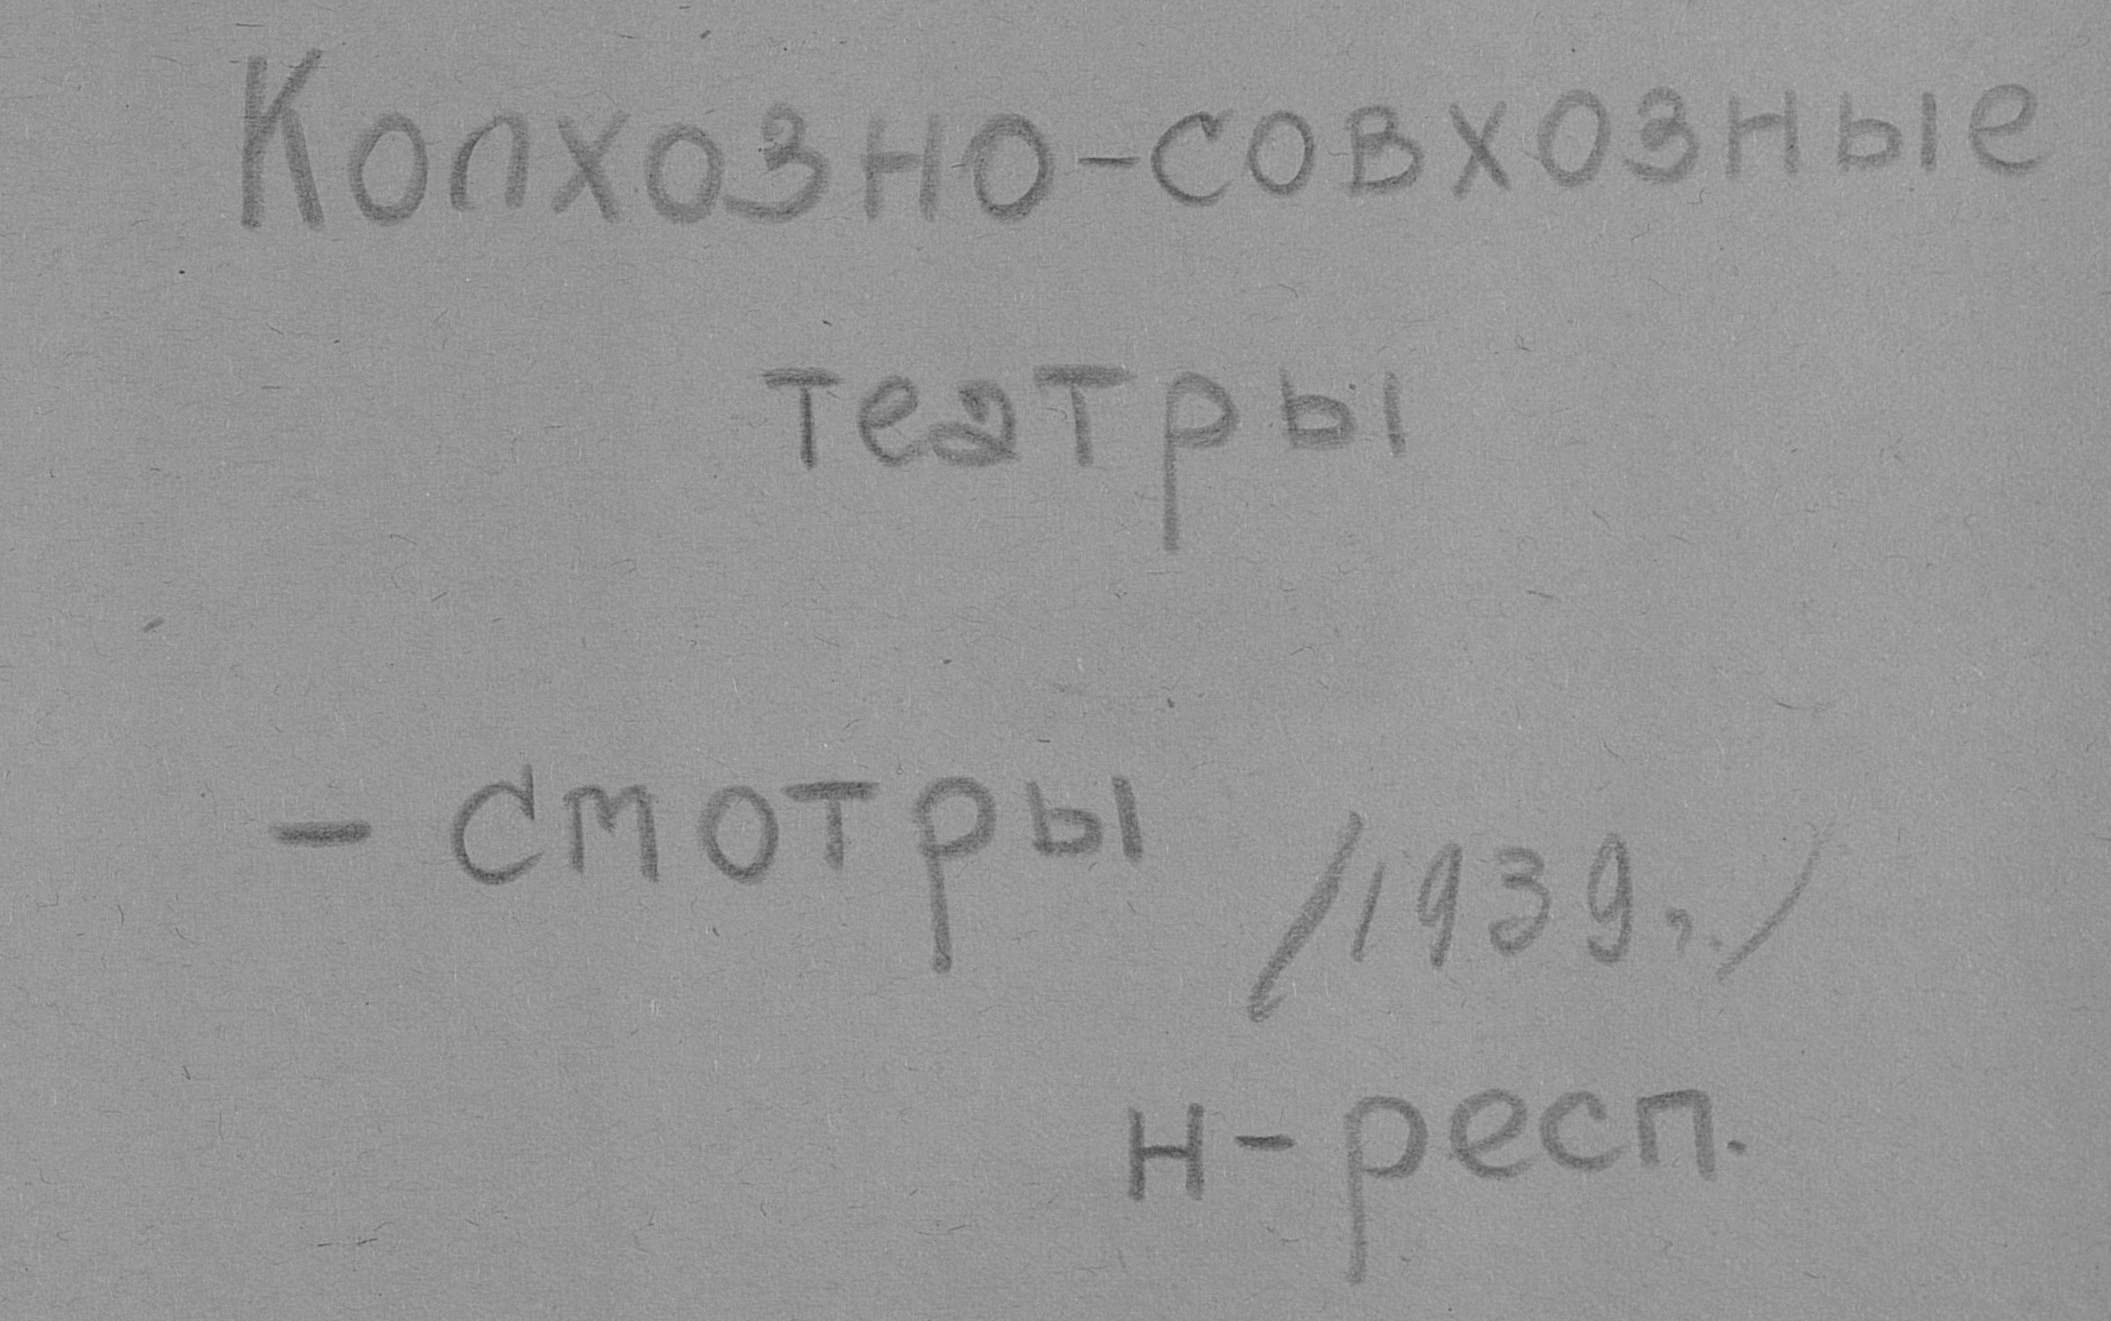 Колхозно-совхозные
театры
- смотры /1939г./
н-респ.